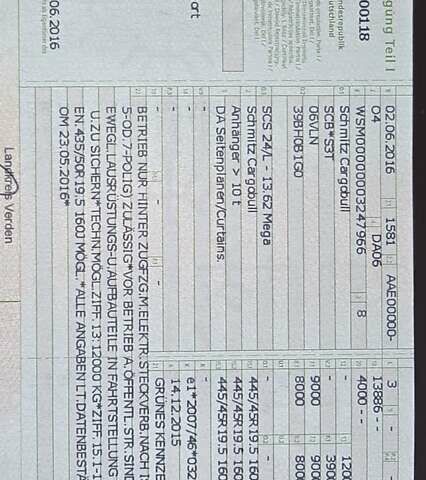 gung Teil I
ndesrepublik
utschland
00118
06.2016
ort
02.06.2016 1581 AAE00000-
04 DA06
WSM00000003247966 8
Schmitz Cargobull
SCB*S3T
06VLN
39BH0B1G0
SCS 24/L - 13.62 Mega
Schmitz Cargobull
Anhänger > 10 t
DA Seitenplanen/Curtains.
-
-
-
-
3 -
13886 - -
4000 - -
- 1200
- 3900
9000 900
8000 800
- -
445/45R19.5 160
445/45R19.5 160
445/45R19.5 160
-
e1*2007/46*032
14.12.2015
GRÜNES KENNZE
BETRIEB NUR HINTER ZUGFZG.M.ELEKTR. STECKVERB.NACH IS
5-OD.7-POLIG) ZULÄSSIG*VOR BETRIEB A.ÖFFENTL.STR. SIND
EWEGL.AUSRÜSTUNGS-U.AUFBAUTEILE IN FAHRTSTELLUNG
U.ZU SICHERN*TECHN.MÖGL.ZIFF. 13: 12000 KG*ZIFF.15.1-1
EN 435/50R19.5 160J MÖGL.*ALLE ANGABEN LT.DATENBESTÄ
OM 23.05.2016*
Landkreis Verden